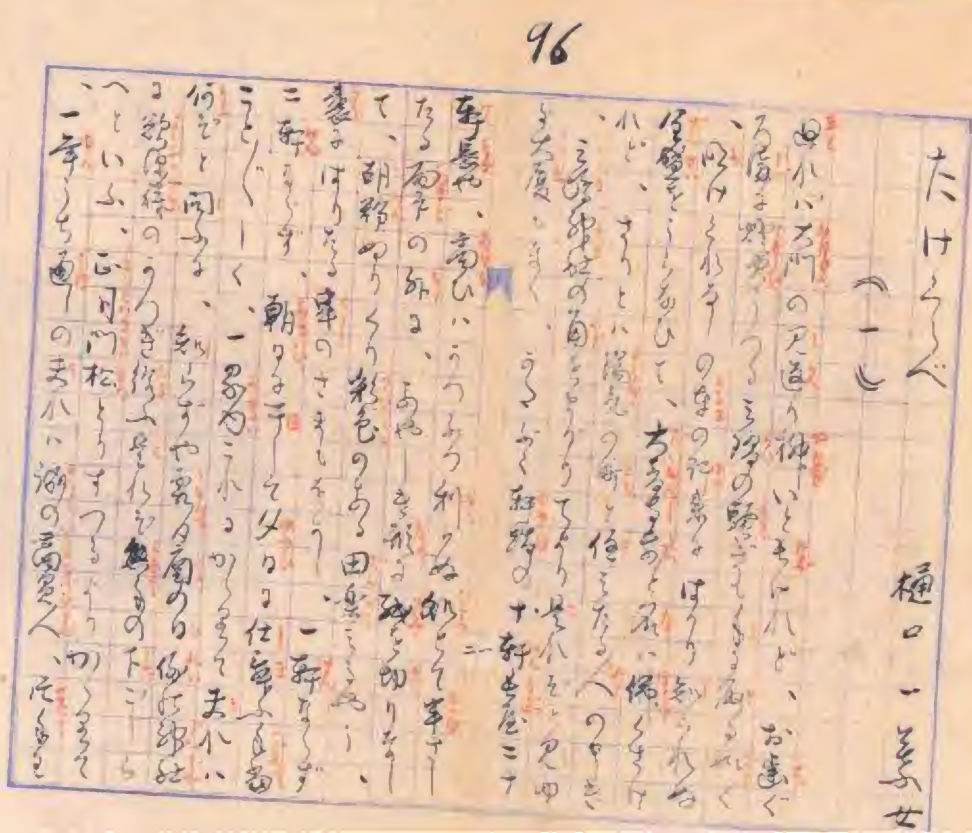 96
たけくらべ
樋口一葉女
(一)
廻れば大門の見返り柳いと長けれど、お歯ぐ
ろ溝に燈火うつる三階の騒ぎも手に取る如く
、明けくれなしの車の行来にはかり知られぬ
全盛をうらなひて、大音寺前と名は佛くさけ
れど、さりとは陽気の町と住みたる人の申き
三嶋神社の角をまがりてより是れぞと見ゆ
る大厦もなく、かたぶく軒端の十軒長屋二十
軒長や、商ひはかつふつ利かぬ処とて半さし
たる雨戸の外に、あやしき形に紙を切りなし
て、胡粉ぬりくり彩色のある田楽みるやう、
裏にはりたる串のさまもをかし、一軒ならず
二軒ならず、朝日に干して夕日に仕舞ふ手当
ことごとしく、一家内これにかゝりて夫れは
何ぞと問ふに、知らずや霜月酉の日例の神社
に欲深様のかつぎ給ふ是れぞ熊手の下ごしら
へといふ、正月門松とりすつるよりかゝりて
、一年うち通しの夫れは誠の商買人、片手わ